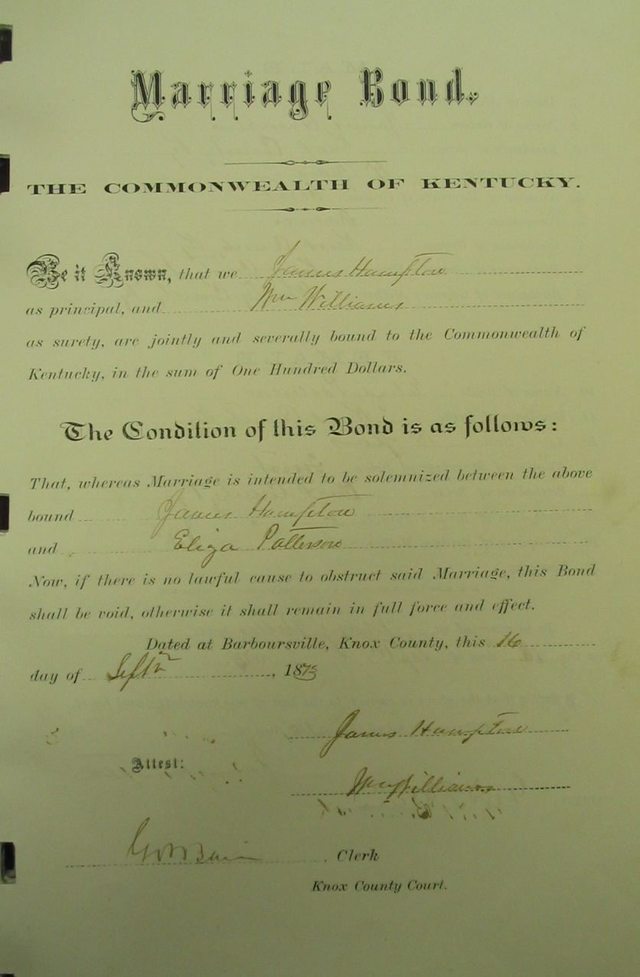 Marriage Bond.
THE COMMONWEALTH OF KENTUCKY.
Be it Known, that we James Hampton
as principal, and Wm Williams
as surety, are jointly and severally bound to the Commonwealth of
Kentucky, in the sum of One Hundred Dollars.
The Condition of this Bond is as follows:
That, whereas Marriage is intended to be solemnized between the above
bound James Hampton
and Eliza Patterson
Now, if there is no lawful cause to obstruct said Marriage, this Bond
shall be void, otherwise it shall remain in full force and effect.
Dated at Barboursville, Knox County, this 16
day of Septr, 1873
James Hampton
Attest:
Wm Williams
Clerk
Knox County Court.